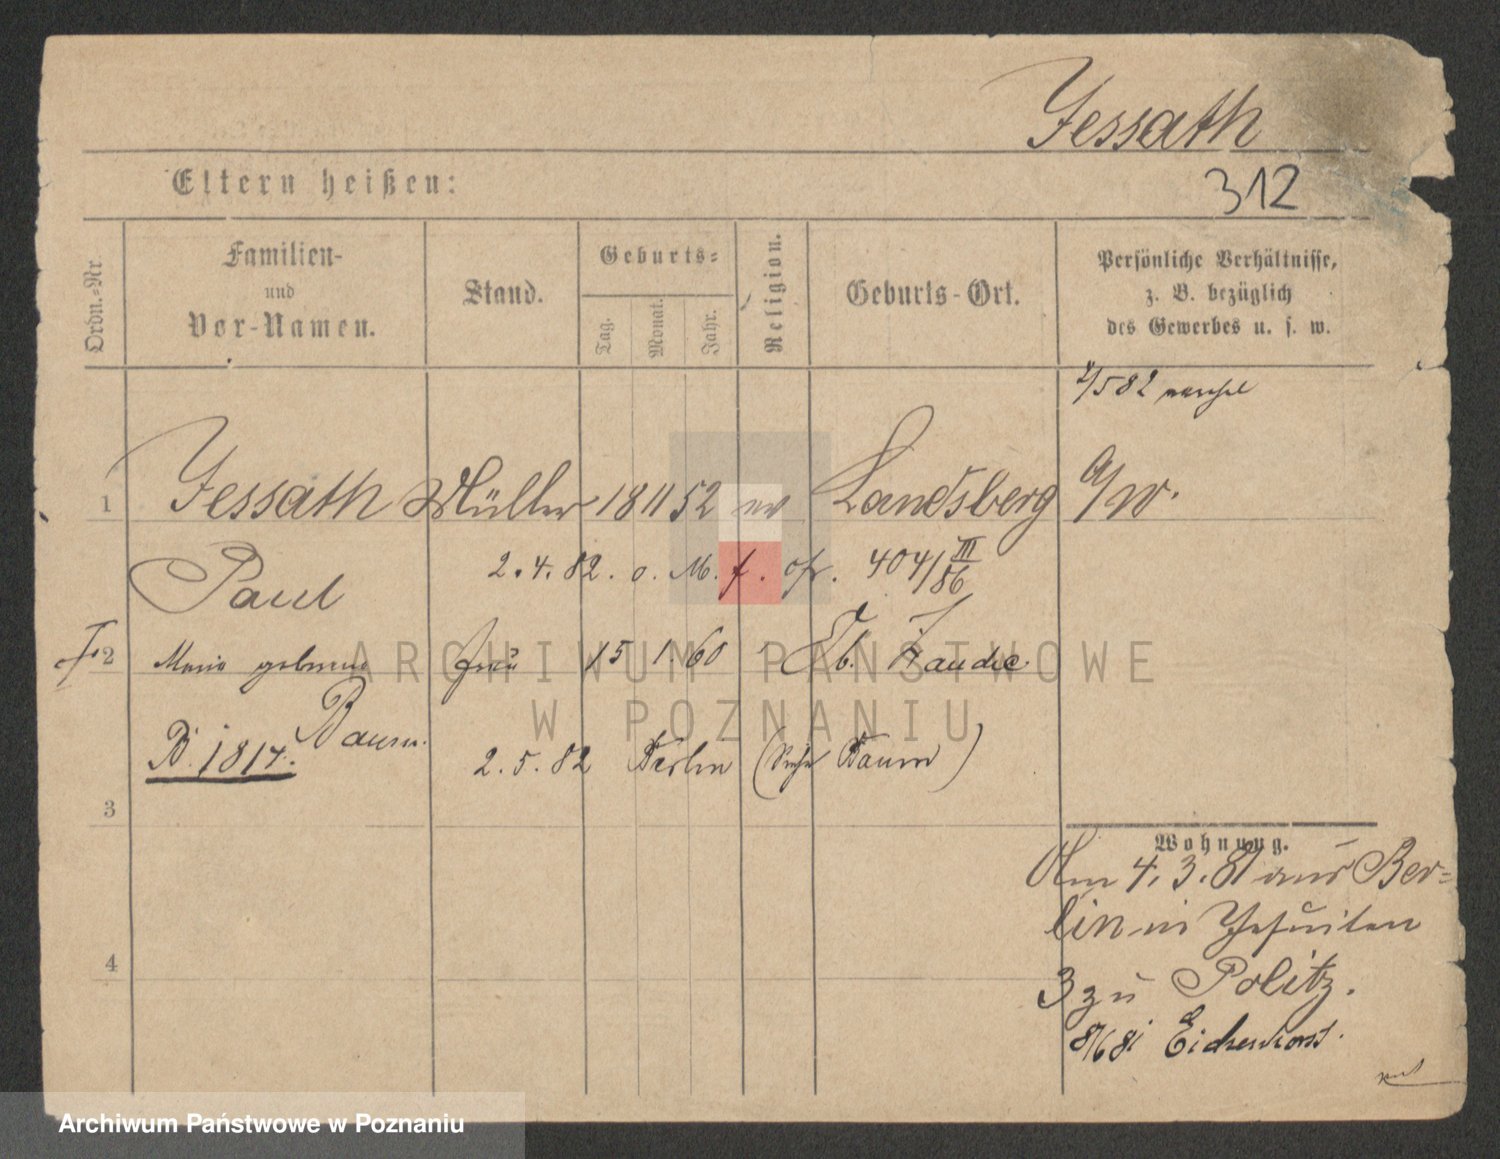 Jessath
312
Eltern heißen:
Ordn.-Nr
Familien-
und
Vor-Namen.
Stand.
Geburts-
Tag.
Monat.
Jahr.
Religion.
Geburts-Ort.
Persönliche Verhältnisse,
z. B. bezüglich
des Gewerbes u. s. w.
2/5 82
1 Jessath Müller 18 11 52 ev Landsberg a/W.
Paul
2. 4. 82. o. M. f. 404/III 86
2 Maria geborene Frau 15 1. 60
Baum.
B. 1817.
2. 5. 82 Berlin (siehe Baum)
3
Wohnung.
Am 4. 3. 81 aus Ber-
lin in Jesuiten
3 zu Politz.
4
8/6 81
ARCHIWUM PAŃSTWOWE
W POZNANIU
Archiwum Państwowe w Poznaniu